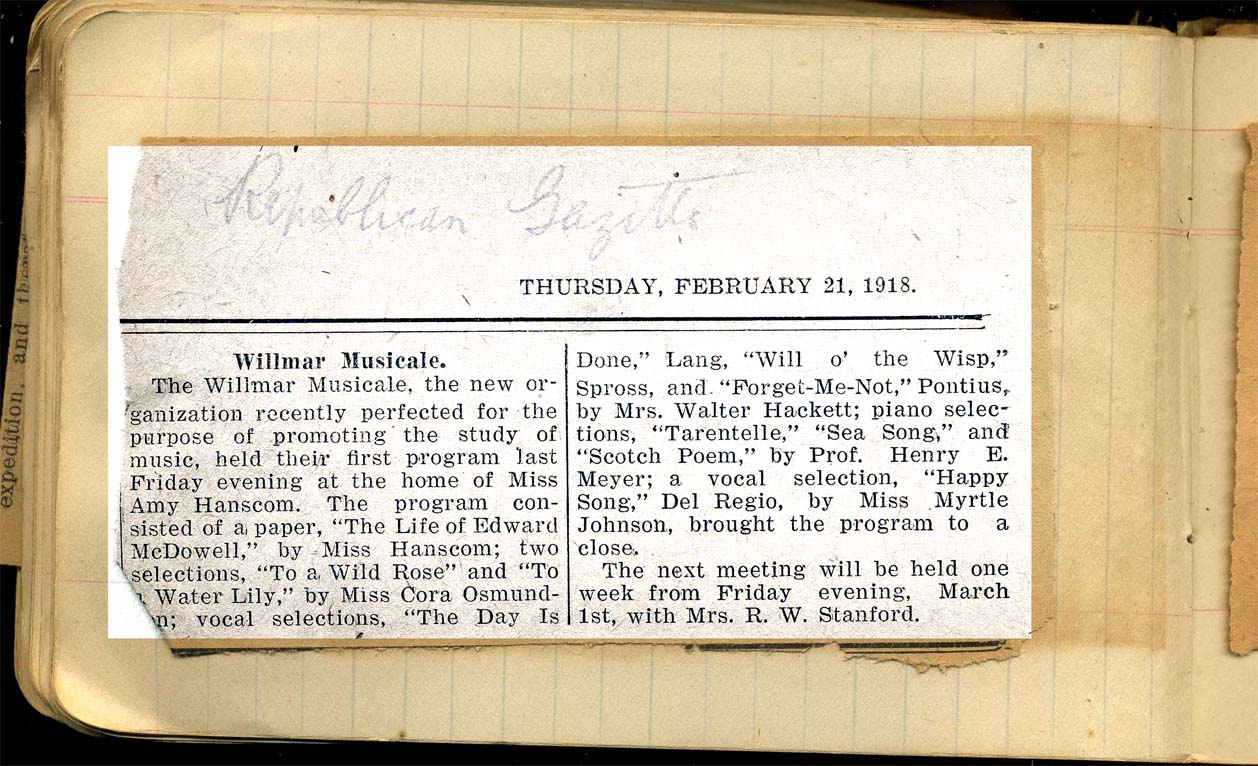 Republican Gazette
THURSDAY, FEBRUARY 21, 1918.
Willmar Musicale.
The Willmar Musicale, the new or-
ganization recently perfected for the
purpose of promoting the study of
music, held their first program last
Friday evening at the home of Miss
Amy Hanscom. The program con-
sisted of a paper, “The Life of Edward
McDowell,” by Miss Hanscom; two
selections, “To a Wild Rose” and “To
a Water Lily,” by Miss Cora Osmund-
n; vocal selections, “The Day Is
Done,” Lang, “Will o’ the Wisp,”
Spross, and “Forget-Me-Not,” Pontius,
by Mrs. Walter Hackett; piano selec-
tions, “Tarentelle,” “Sea Song,” and
“Scotch Poem,” by Prof. Henry E.
Meyer; a vocal selection, “Happy
Song,” Del Regio, by Miss Myrtle
Johnson, brought the program to a
close.
The next meeting will be held one
week from Friday evening, March
1st, with Mrs. R. W. Stanford.
expedition, and